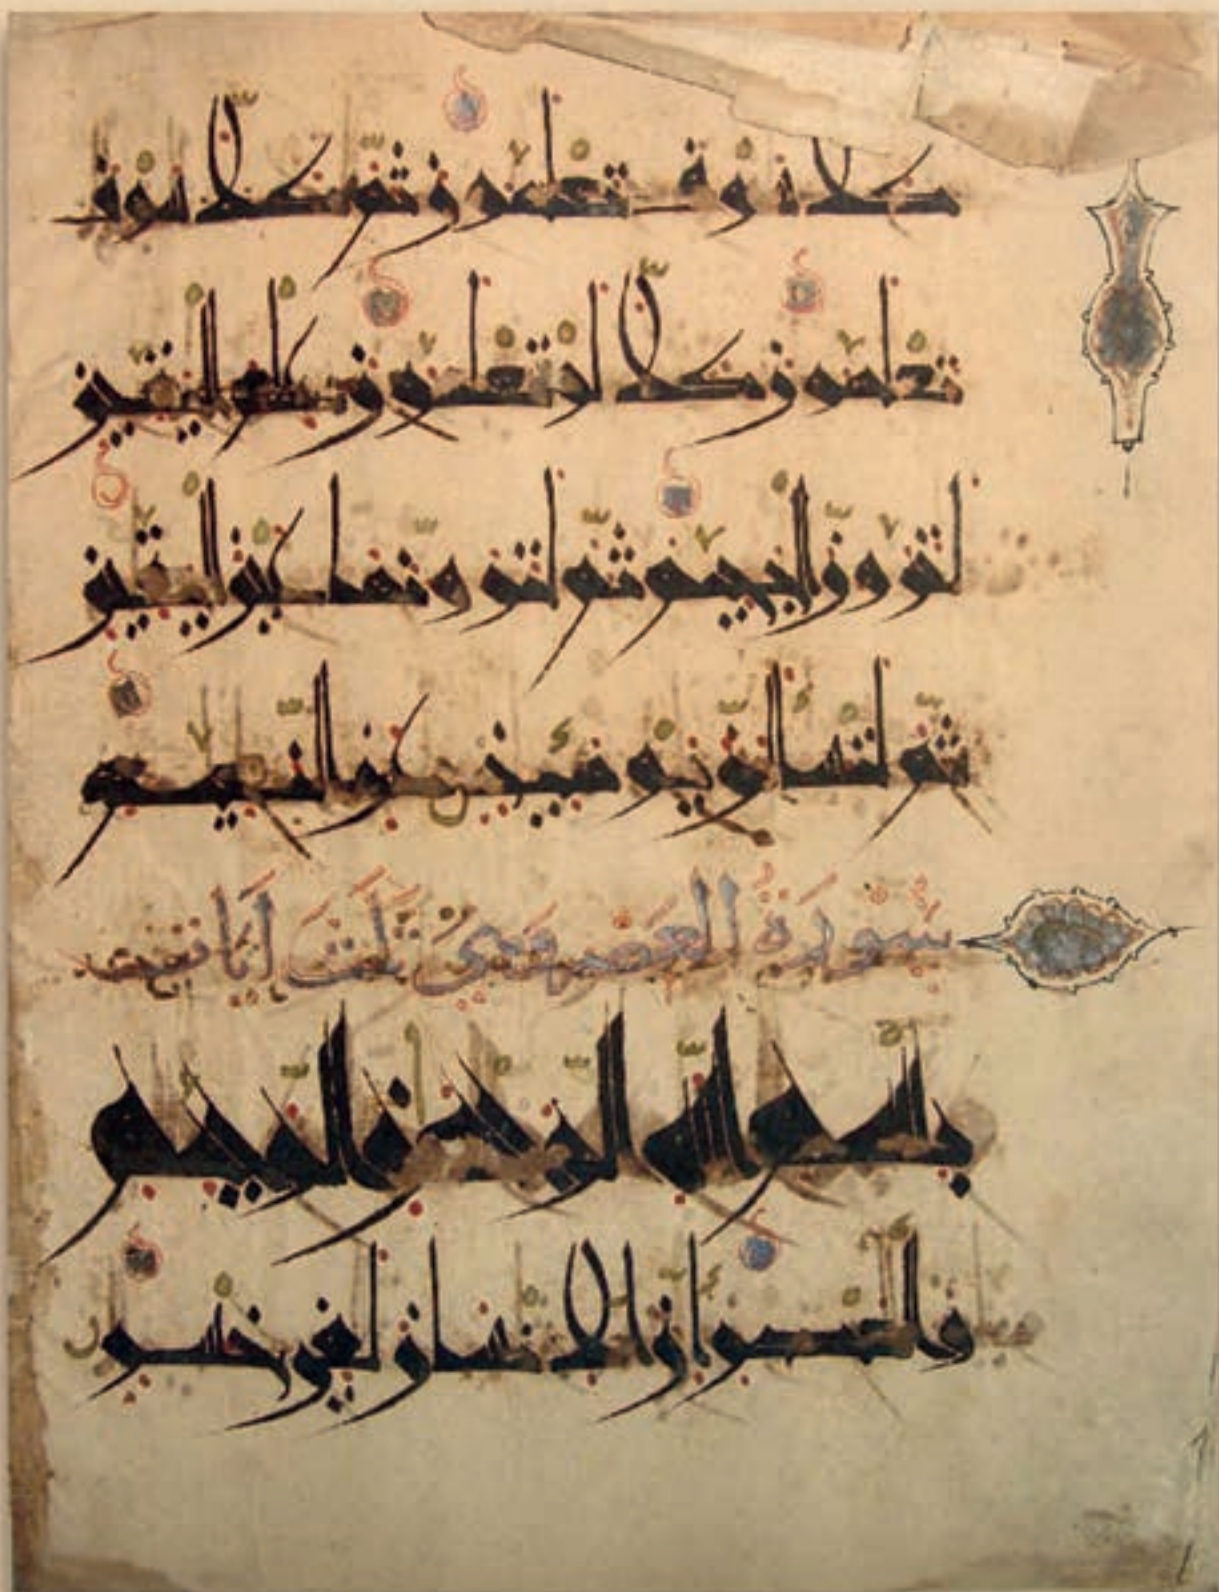 كلا سوف تعلمون ثم كلا سوف
تعلمون كلا لو تعلمون علم اليقين
لترون الجحيم ثم لترونها عين اليقين
ثم لتسألن يومئذ عن النعيم
سُورَةُ العَصْرِ وَهِيَ ثَلَثُ آيَات
بسم الله الرحمن الرحيم
والعصر إن الانسان لفي خسر